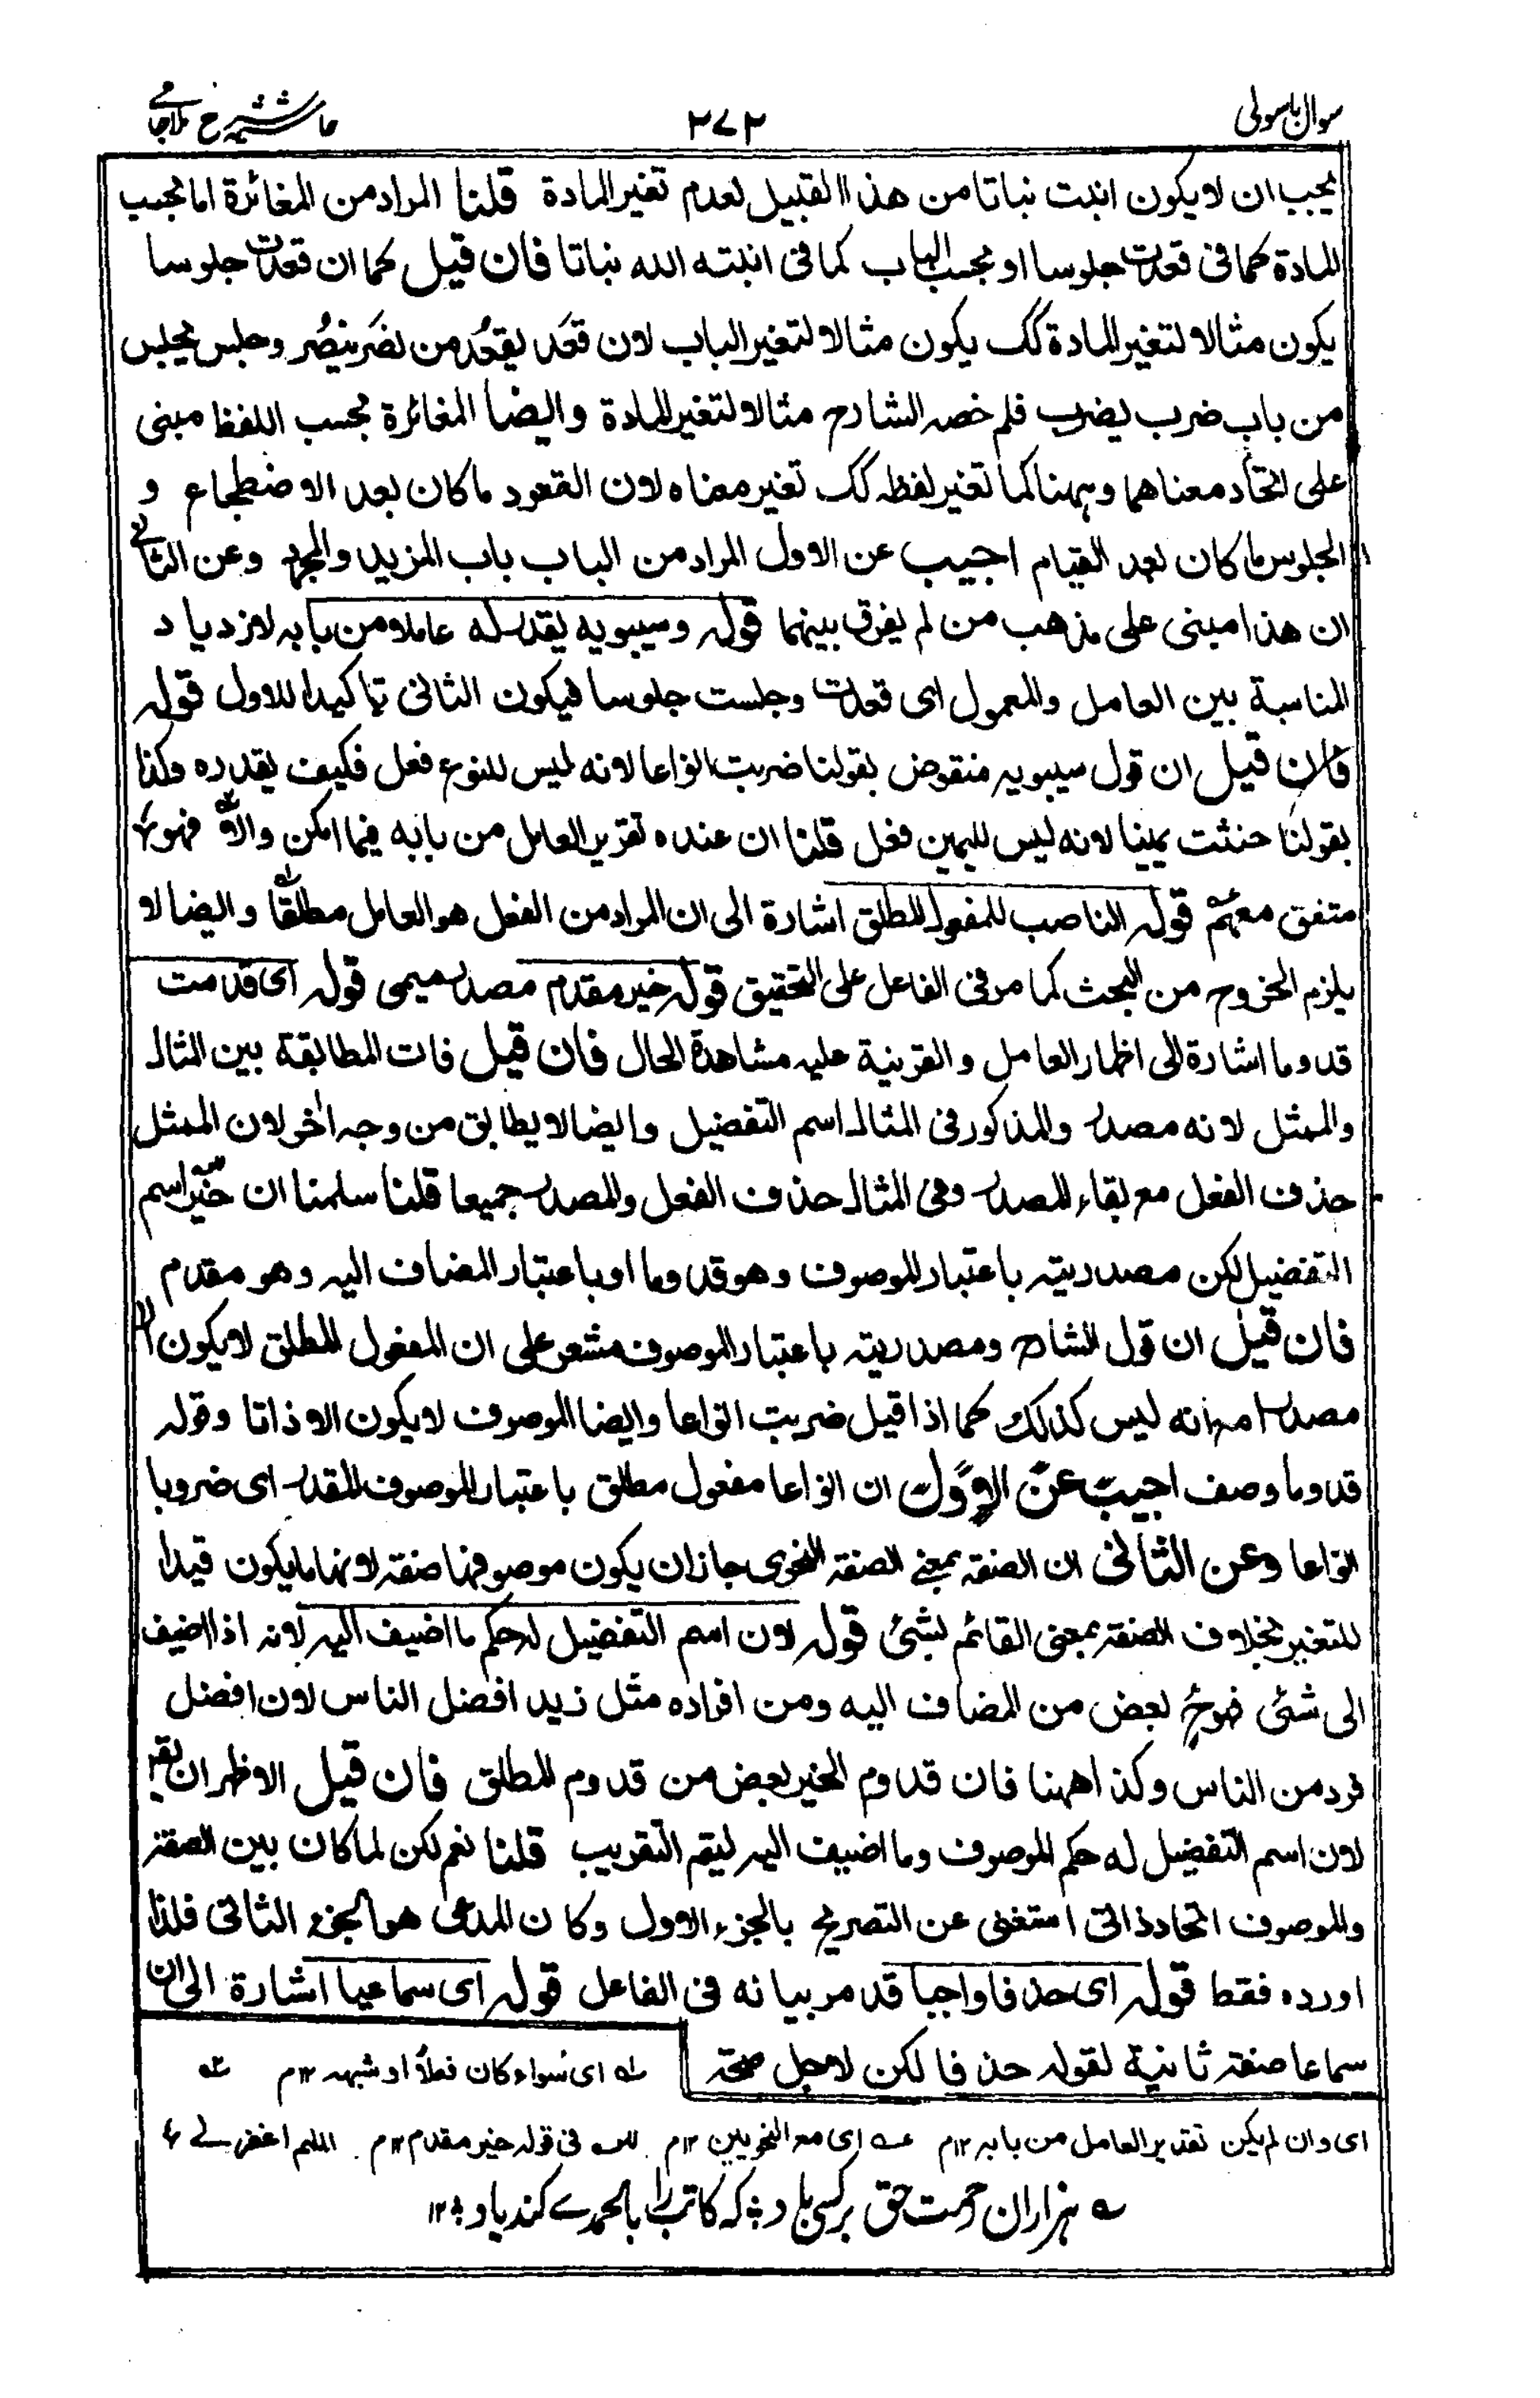 سوال باسولی
۲۷۲
حاشیہ شرح ملا جامی
یجب ان لا یکون انبت نباتا من هذا القبیل لعدم تغیر المادة قلنا المراد من المغائرة اما بحسب
المادة کما فی قعدت جلوسا او بحسب الباب کما فی انبته الله نباتا فان قیل کما ان قعدت جلوسا
یکون مثالا لتغیر المادة کک یکون مثالا لتغیر الباب لان قعَد یقعُد من نصَر ینصُر وجلس یجلس
من باب ضرب یضرب فلم خصه الشارح مثالا لتغیر المادة وایضا المغائرة بحسب اللفظ مبنی
علی اتحاد معناهما وههنا کما تغیر لفظه کک تغیر معناه لان القعود ما کان بعد الاضطجاع و
الجلوس ما کان بعد القیام اجیب عن الاول المراد من الباب باب المزید والمجرد وعن الثانی
ان هذا مبنی علی مذهب من لم یفرق بینهما قوله وسیبویه یقدر له عاملا من بابه لازدیاد
المناسبة بین العامل والمعمول ای قعدت وجلست جلوسا فیکون الثانی تاکیدا للاول قوله
فان قیل ان قول سیبویه منقوض بقولنا ضربت انواعا لانه لیس للنوع فعل فکیف یقدره وکذا
بقولنا حنثت یمینا لانه لیس للیمین فعل قلنا ان عنده تقدیر العامل من بابه فیما امکن والا فهو
متفق معهم قوله الناصب للمفعول المطلق اشارة الی ان المراد من الفعل هو العامل مطلقا وایضا لا
یلزم الخروج من البحث کما مر فی الفاعل علی التحقیق قوله خیر مقدم مصدر میمی قوله ای قدمت
قدوما اشارة الی اظهار العامل والقرینة علیه مشاهدة الحال فان قیل فات المطابقة بین المثال
والممثل لانه مصدر والمذکور فی المثال اسم التفضیل وایضا لا یطابق من وجه اٰخر لان الممثل
حذف الفعل مع بقاء المصدر وفی المثال حذف الفعل والمصدر جمیعا قلنا سلمنا ان خیر اسم
التفضیل لکن مصدریته باعتبار الموصوف وهو قدوما او باعتبار المضاف الیه وهو مقدم
فان قیل ان قول الشارح ومصدریته باعتبار الموصوف مشعر علی ان المفعول المطلق لا یکون الا
مصدرا مع انه لیس کذالک کما اذا قیل ضربت انواعا وایضا الموصوف لا یکون الا ذاتا وقوله
قدوما وصف اجیب عن الاول ان انواعا مفعول مطلق باعتبار الموصوف المقدر ای ضروبا
انواعا وعن الثانی ان الصفة بمعنے الصفة النحوی جاز ان یکون موصوفها صفة لانها ما یکون قیدا
للتغیر بخلاف الصفة بمعنی القائم بشئ قوله لان اسم التفضیل له حکم ما اضیف الیه لانه اذا اضیف
الی شئی فهو بعض من المضاف الیه ومن افراده مثل زید افضل الناس لان افضل
فرد من الناس وکذا ههنا فان قدوم الخیر بعض من قدوم المطلق فان قیل الاظهر ان یقر
لان اسم التفضیل له حکم الموصوف وما اضیف الیه لیتم التقریب قلنا نعم لکن لما کان بین الصفة
والموصوف اتحاد ذاتی استغنی عن التصریح بالجزء الاول وکان المدعی هو الجزء الثانی فلذا
اورده فقط قوله ای حذفا واجبا قد مر بیانه فی الفاعل قوله ای سماعیا اشارة الی ان
سماعا صفة ثانیة لقوله حذفا لکن لاجل صحة
ای سواء کان فعلاً او شبهه ۱۲م
ای وان لم یکن تقدیر العامل من بابه ۱۲م ای مع النحویین ۱۲م فی قوله خیر مقدم ۱۲م اللهم اغفر لے
ہزاران رحمت حق بر کسی باد ؛ کہ کاتب را بالحمدے کند یاد ؛ ۱۲